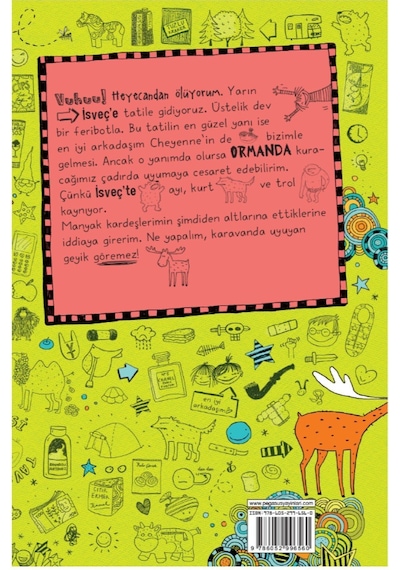 Vuhuu! Heyecandan ölüyorum. Yarın
İsveç'e tatile gidiyoruz. Üstelik dev
bir feribotla. Bu tatilin en güzel yanı ise
en iyi arkadaşım Cheyenne'in de bizimle
gelmesi. Ancak o yanımda olursa ORMANDA kura-
cağımız çadırda uyumaya cesaret edebilirim.
Çünkü İsveç'te ayı, kurt ve trol
kaynıyor.
Manyak kardeşlerimin şimdiden altlarına ettiklerine
iddiaya girerim. Ne yapalım, karavanda uyuyan
geyik göremez!
en iyi
arkadaşım
www.pegasusyayinlari.com
9 786052 996560